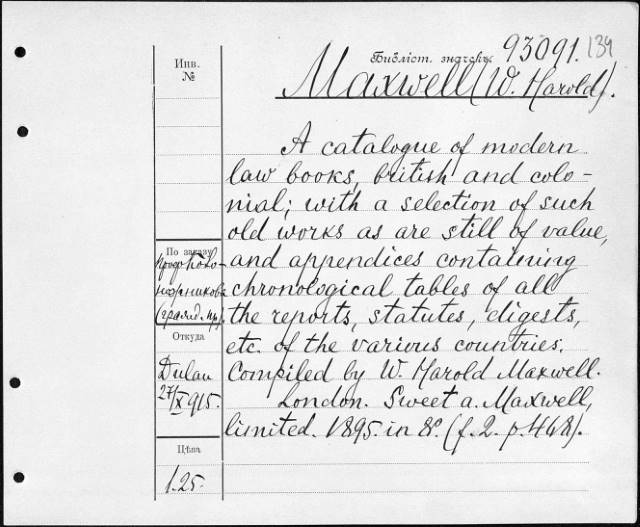 Библіот. значекъ 93091. 139
Maxwell (W. Harold).
Инв.
№
A catalogue of modern
law books, british and colo-
nial; with a selection of such
old works as are still of value,
and appendices containing
chronological tables of all
the reports, statutes, digests,
etc. of the various countries.
Compiled by W. Harold Maxwell.
London. Sweet a. Maxwell,
limited. 1895. in 8°. (f. 2. p. 448).
По заказу
проф.
(гражд. пр.)
Откуда
Dulau
27/X 915.
Цѣна
1.25.